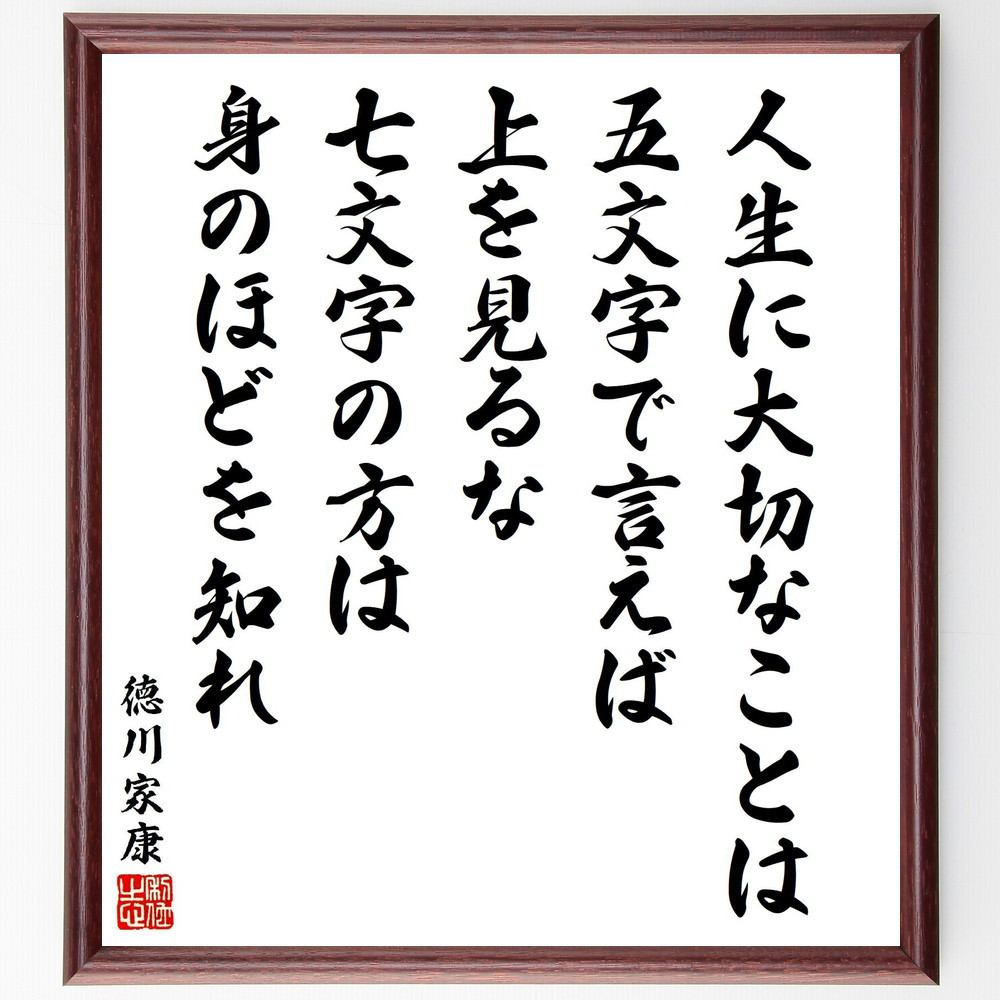 人生に大切なことは
五文字で言えば
上を見るな
七文字の方は
身のほどを知れ
徳川家康